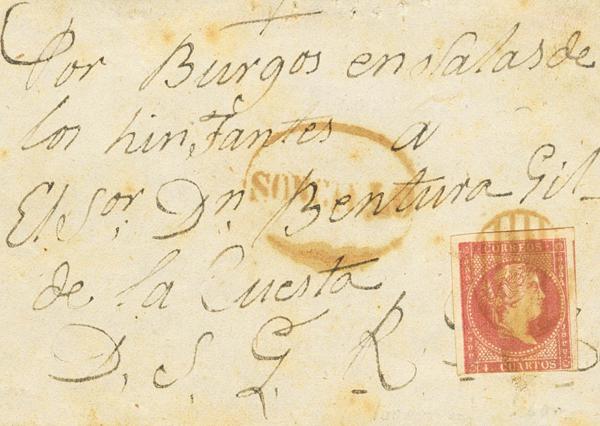 Por Burgos en Salas de
los hin,Fantes a
El Sor. Dn Bentura Gil
de la Cuesta
D. S. G. R.
CORREOS
4 CUARTOS